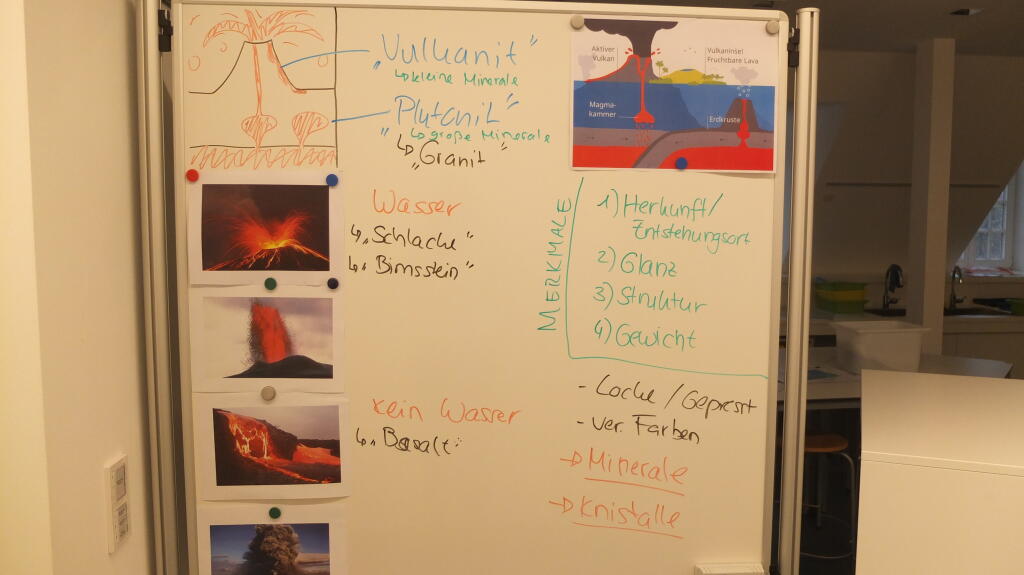 „Vulkanit“
↳ kleine Minerale
„Plutonit“
↳ große Minerale
↳ „Granit“
Aktiver
Vulkan
Vulkaninsel
Fruchtbare Lava
Magma-
kammer
Erdkruste
Wasser
↳ „Schlacke“
↳ „Bimsstein“
kein Wasser
↳ „Basalt“
MERKMALE
1) Herkunft/
Entstehungsort
2) Glanz
3) Struktur
4) Gewicht
- Locke / Gepresst
- ver. Farben
→ Minerale
→ Kristalle